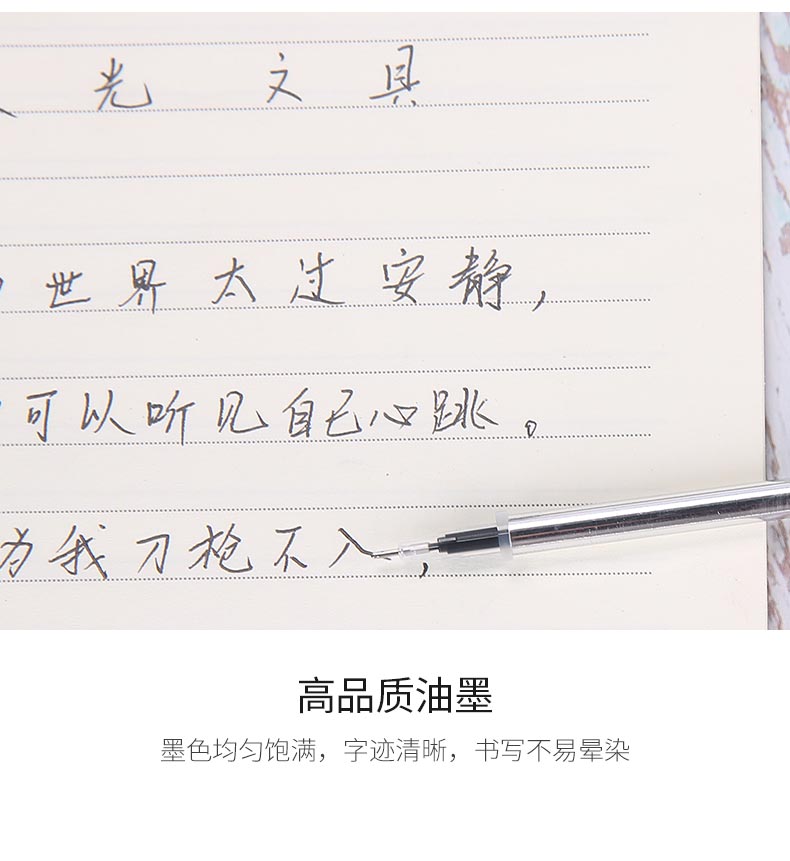 光文具
世界太过安静,
可以听见自己心跳。
为我刀枪不入,
高品质油墨
墨色均匀饱满，字迹清晰，书写不易晕染